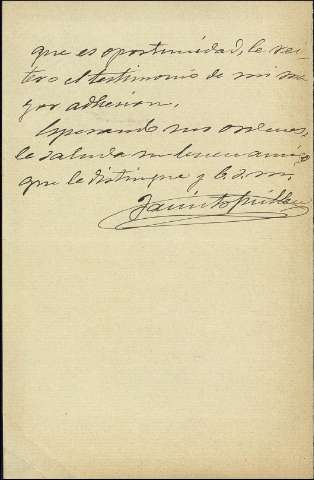 que es oportunidad, le rei-
tero el testimonio de mi ma-
yor adhesion.
Esperando sus ordenes,
le saluda su buen amigo
que le distingue y b. s. m.
Jacinto